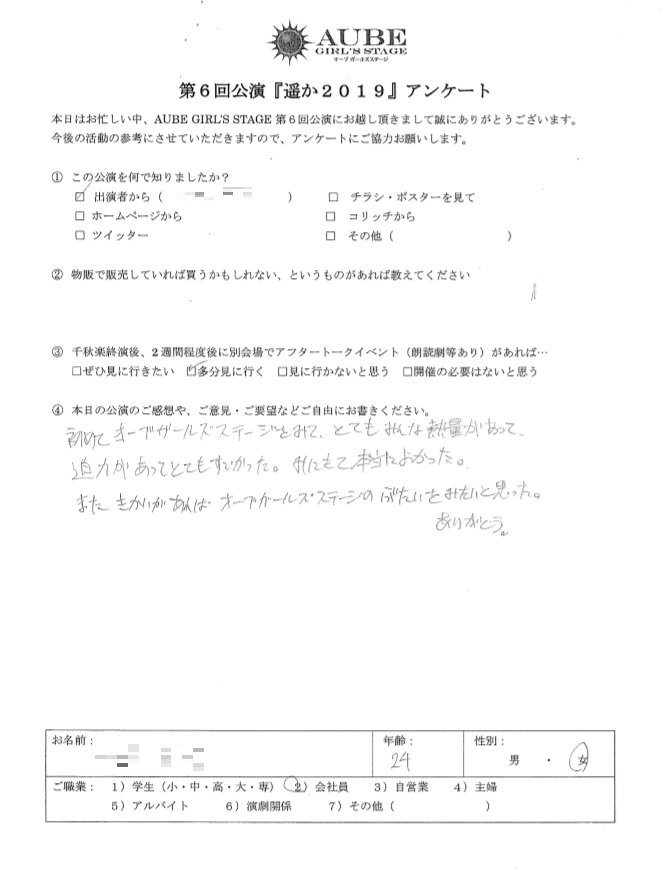 AUBE
GIRL'S STAGE
オーブ ガールズステージ
第６回公演『遥か２０１９』アンケート
本日はお忙しい中、AUBE GIRL'S STAGE 第６回公演にお越し頂きまして誠にありがとうございます。
今後の活動の参考にさせていただきますので、アンケートにご協力お願いします。
① この公演を何で知りましたか？
☑ 出演者から（ ） □ チラシ・ポスターを見て
□ ホームページから □ コリッチから
□ ツイッター □ その他（ ）
② 物販で販売していれば買うかもしれない、というものがあれば教えてください
③ 千秋楽終演後、２週間程度後に別会場でアフタートークイベント（朗読劇等あり）があれば…
□ぜひ見に行きたい ☑多分見に行く □見に行かないと思う □開催の必要はないと思う
④ 本日の公演のご感想や、ご意見・ご要望などご自由にお書きください。
初めてオーブガールズステージをみて、とてもみんな熱量があって、
迫力があってとてもすごかった。みにきて本当によかった。
またきかいがあれば オーブガールズステージのぶたいをみたいと思った。
ありがとう。
お名前： 年齢： 性別：
24 男 ・ 女
ご職業： １）学生（小・中・高・大・専） ２）会社員 ３）自営業 ４）主婦
５）アルバイト ６）演劇関係 ７）その他（ ）